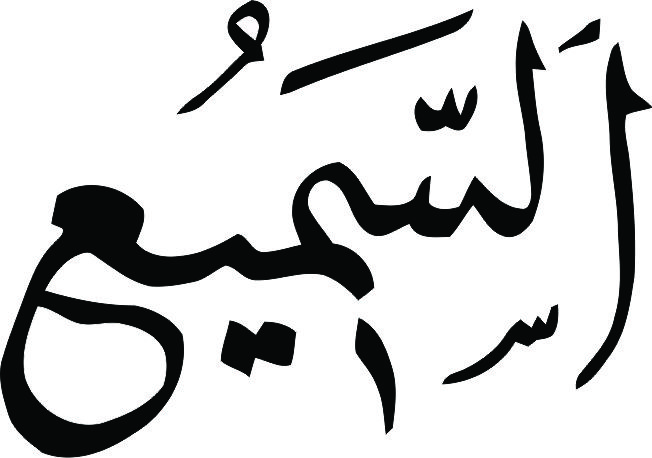 اَلسَّمِيعُ